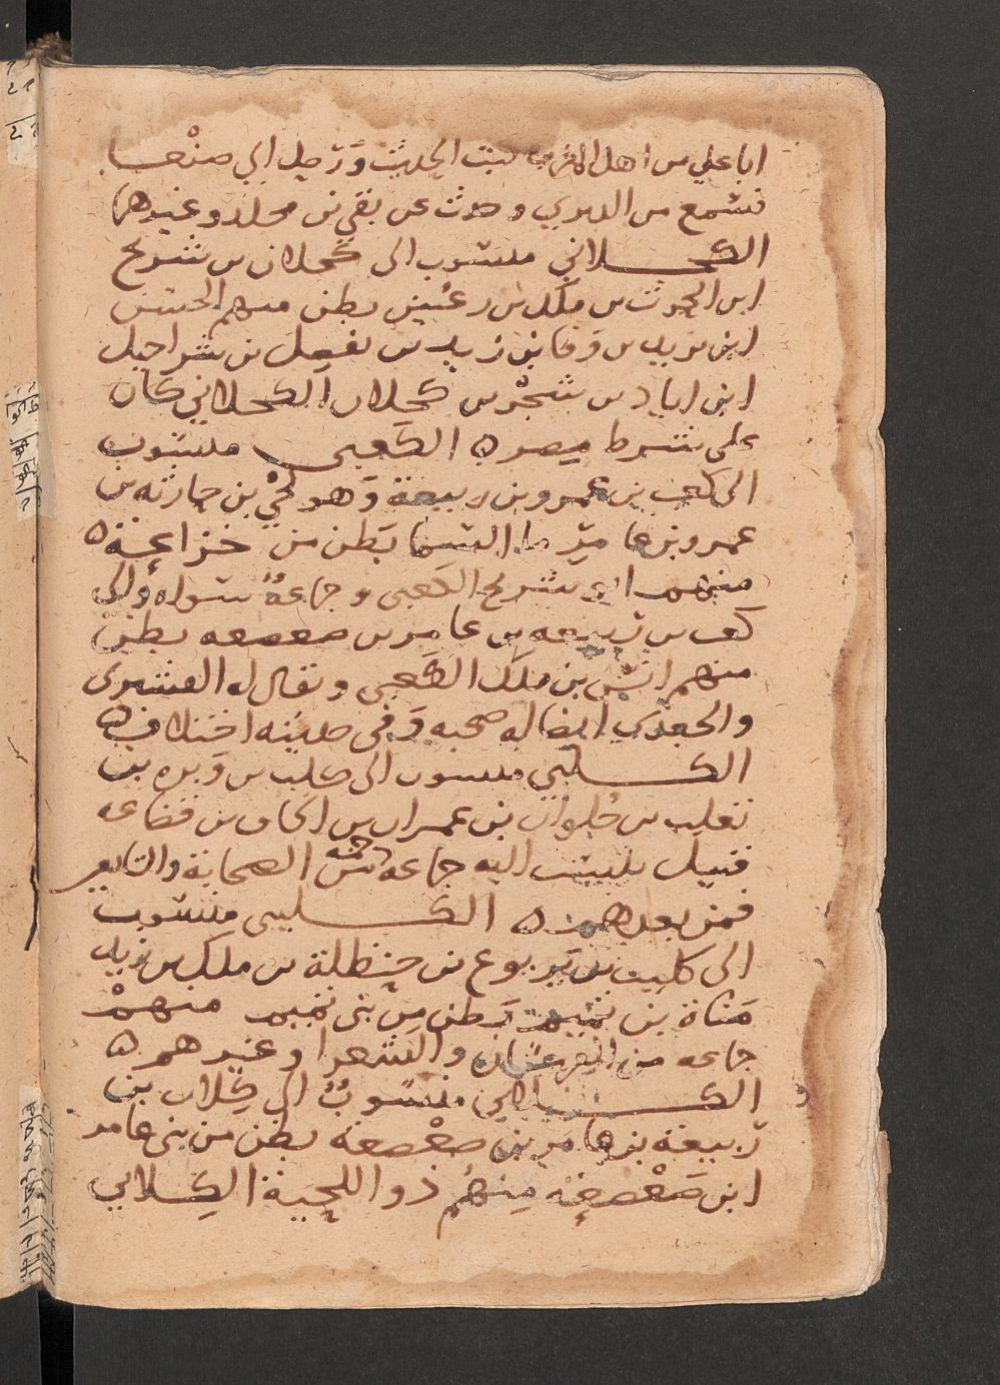 ابا علي من اهل المغرب كتب الحديث ورحل الى صنعا
فسمع من الدبري وحدث عن بقي بن مخلد وغيرهما
الكحلاني منسوب الى كحلان بن شريح
ابن الحرث بن ملك بن رعين بطن منهم الحسن
ابن يزيد بن وفا بن زيد بن نفيل بن شراحيل
ابن اياد بن شجر بن كحلان الكحلاني كان
على شرط مصر ه الكعبي منسوب
الى كعب بن عمرو بن ربيعة وهو لحي بن حارثه بن
عمرو بن عامر ما السما بطن من خزاعة ه
منهم ابو شريح الكعبي وجماعة سواه والى
كعب بن ربيعه بن عامر بن صعصعه بطن
منهم انس بن ملك الكعبي ويقال له القشيري
والجعدي ايضا له صحبه وفي حديثه اختلاف ه
الكلبي منسوب الى كلب بن وبره بن
تغلب بن حلوان بن عمران بن الحاف بن قضاعه
قبيل ينسب اليه جماعه جمه من الصحابة والتابعين
فمن بعدهم ه الكليبي منسوب
الى كليب بن يربوع بن حنظلة بن ملك بن زيد
مناة بن تميم بطن من بني تميم منهم
جماعه من الفرسان والشعرا وغيرهم ه
الكلابي منسوب الى كلاب بن
ربيعة بن عامر بن صعصعه بطن من بني عامر
ابن صعصعه منهم ذو اللحية الكلابي